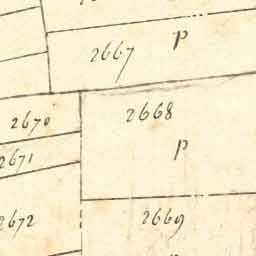 p
2667
2668
2670
p
2671
2669
2672